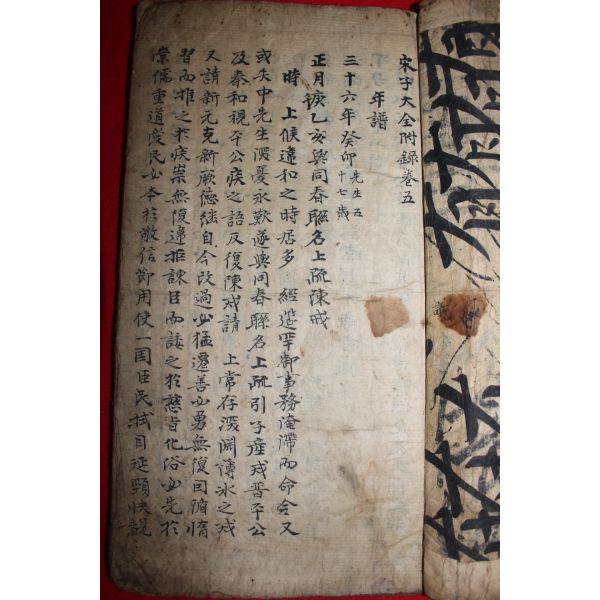 宋子大全附錄卷五
年譜
三十六年癸卯 先生五十七歲
正月庚 乙亥與同春聯名上疏陳戒
時 上候違和之時居多 經筵罕御事務淹滯而命令又
或失中先生深憂永歎遂與同春聯名上疏引子產戒晋平公
及秦和視平公疾之語反復陳戒請 上常存深淵薄冰之戒
又請新元克新厥德継自今改過必猛遷善必勇無復因循惰
習而推之於疾祟無復違拒諫臣而諉之於慈旨化俗必先於
崇儒重道愛民必本於敬信節用使一国臣民拭目延頸快覩